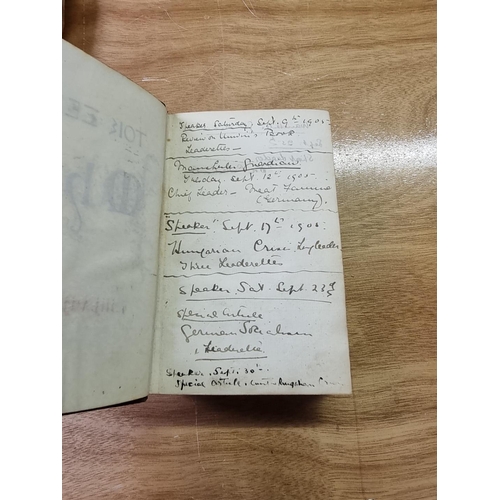 Saturday. Sept. 9th 1905.
Review on Book
Leaderettes —
Manchester Guardian
Tuesday Sept 12th 1905—
Chief Leader — Meat Famine
(Germany).
"Speaker" Sept. 17th 1905.
Hungarian Crisis
Three Leaderettes
Speaker Sat. Sept. 23rd
Special Article
German Socialism
1 Leaderette
Speaker. Sept. 30th
Special Article.